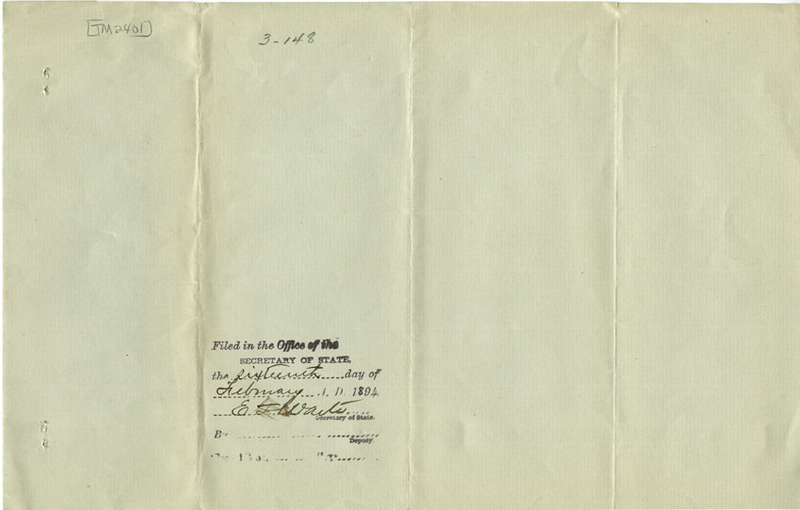 [JM2401]
3-148
Filed in the Office of the
SECRETARY OF STATE,
the sixteenth day of
February A. D. 1894
E G Waite
Secretary of State.
By
Deputy.